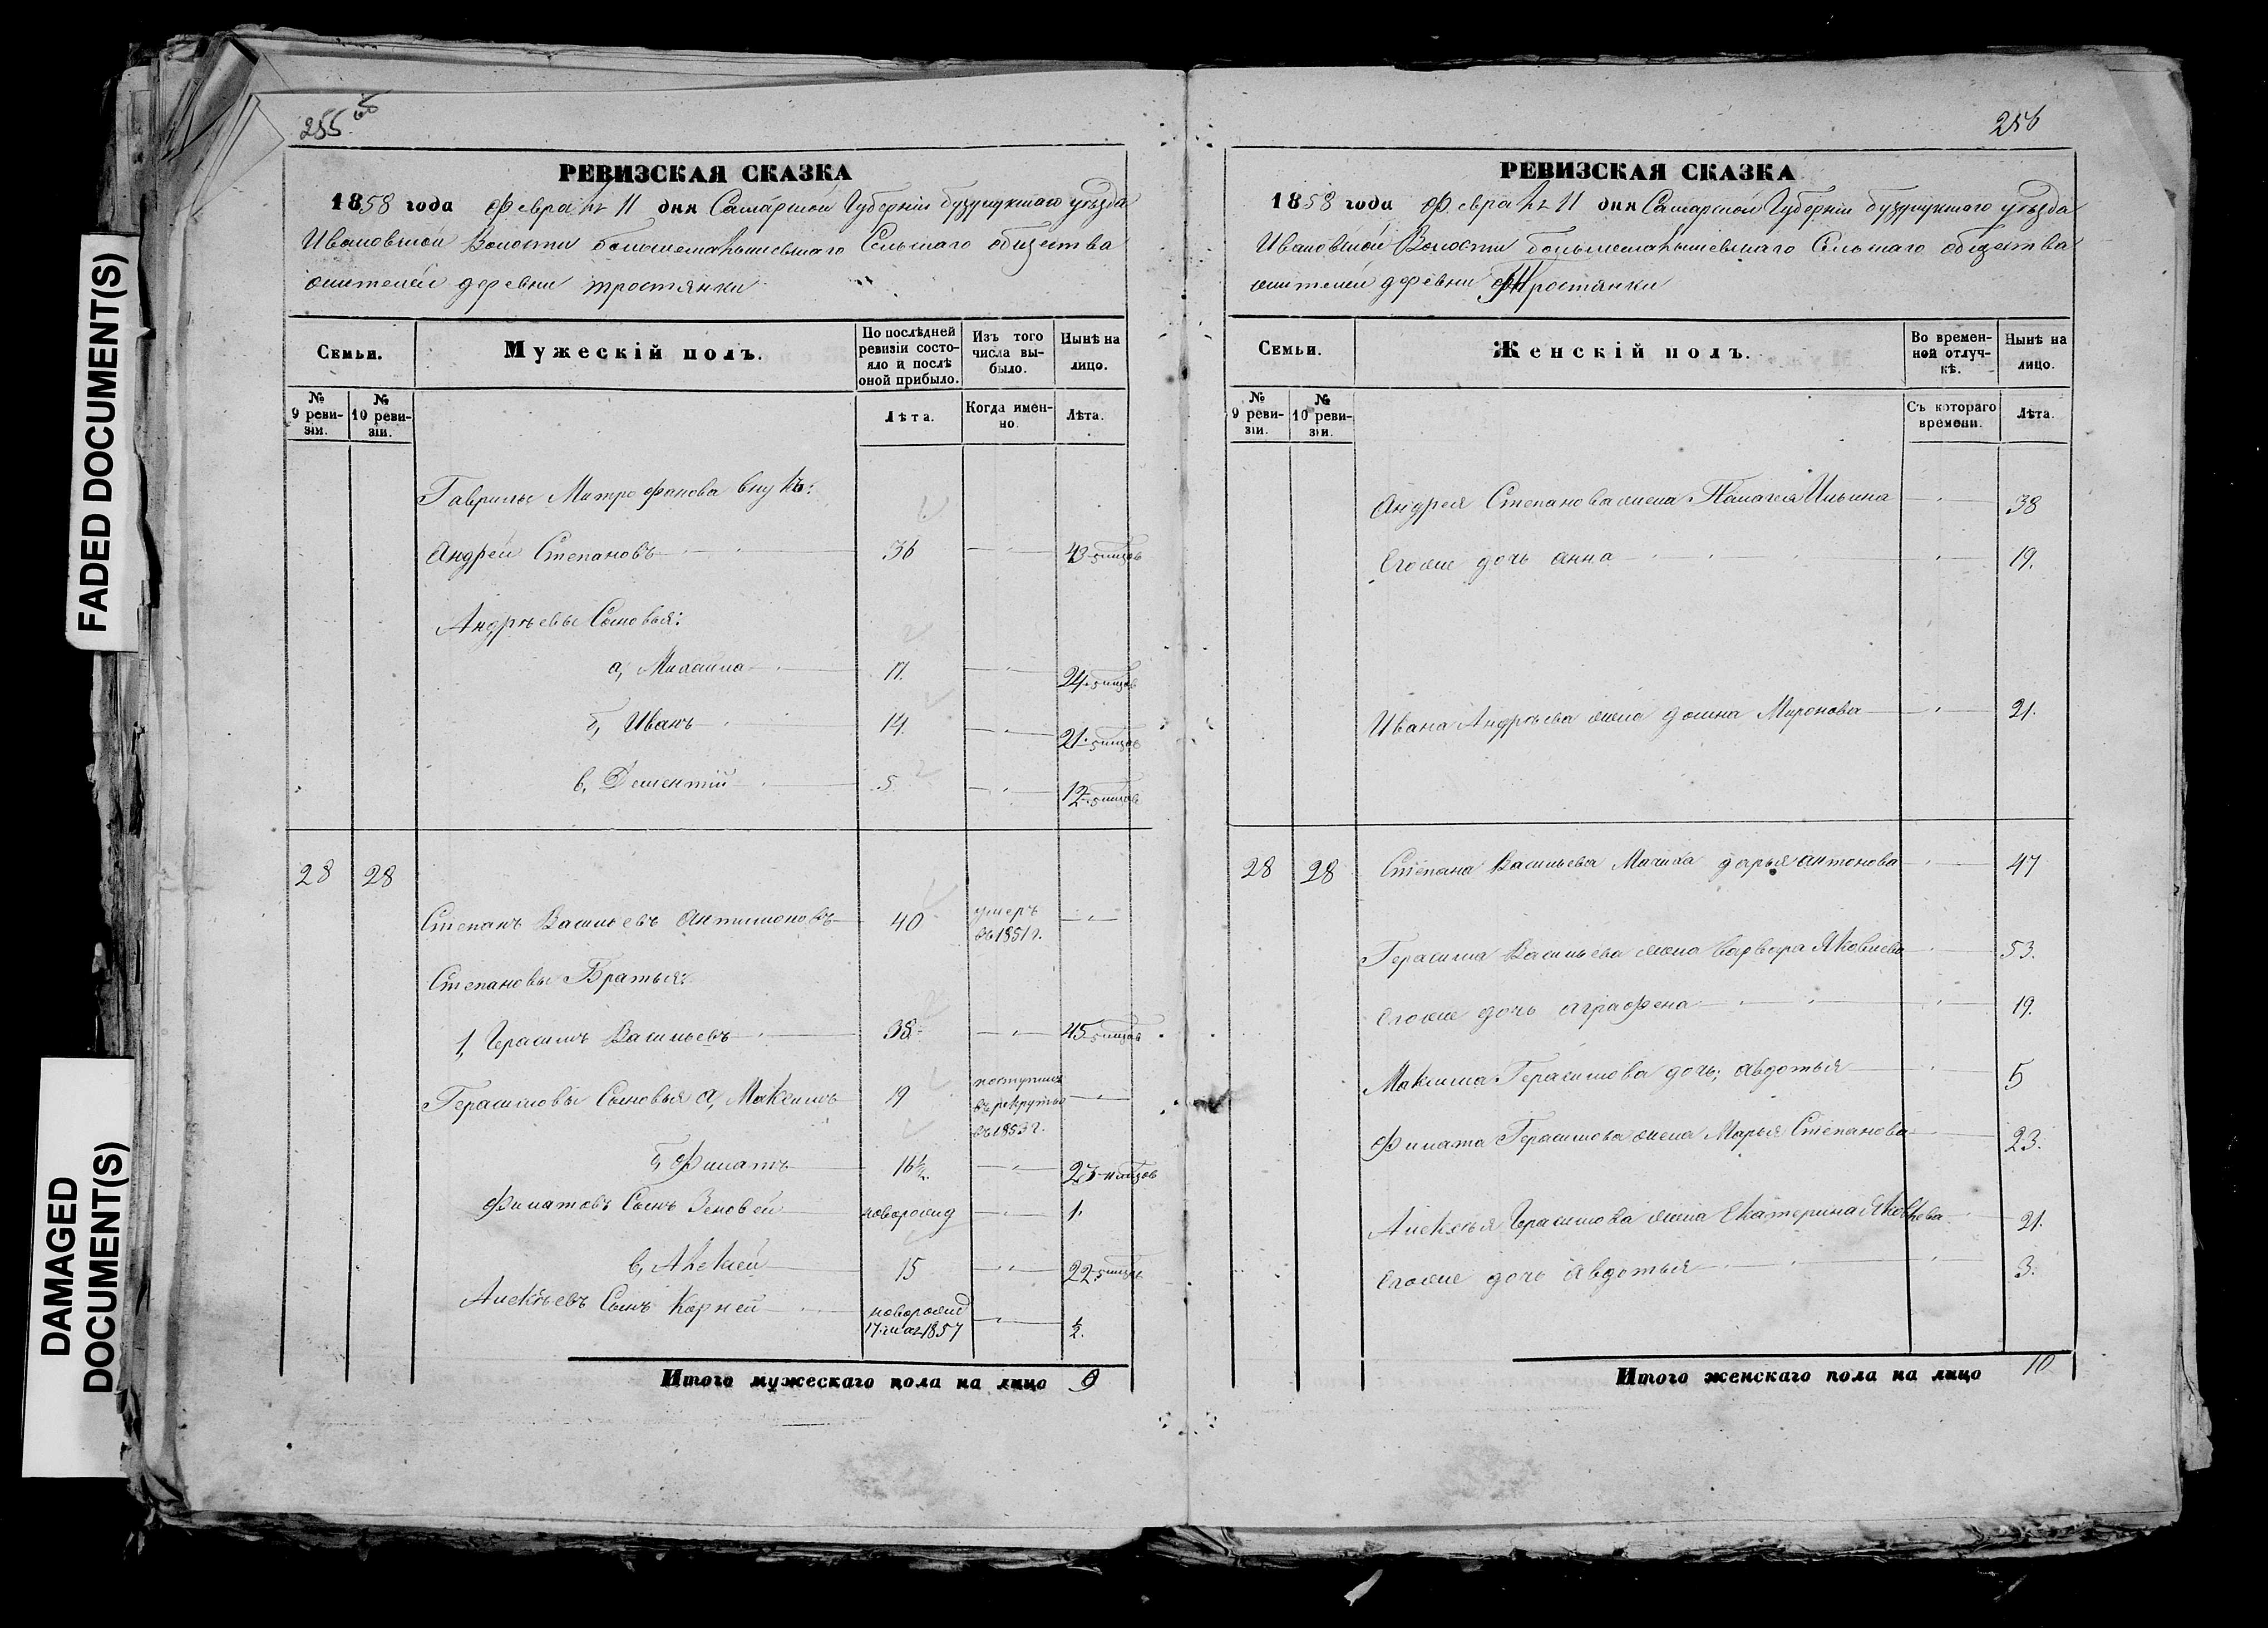 FADED DOCUMENT(S)
DAMAGED
DOCUMENT(S)
255 об
РЕВИЗСКАЯ СКАЗКА
1858 года Февраля 11 дня Самарской Губерніи бузулукскаго уѣзда
Ивановской Волости большемалышевскаго Сельскаго общества
жителей деревни тростянки
Семьи.
Мужескій полъ.
По послѣдней ревизіи состояло и послѣ оной прибыло.
Изъ того числа выбыло.
Нынѣ на лицо.
№ 9 ревизіи.
№ 10 ревизіи.
Лѣта.
Когда именно.
Лѣта.
Гаврилы Митрофанова внукъ:
Андрей Степановъ 36 43
Андрѣевы Сыновья:
а, Михаила 17. 24
б, Иванъ 14. 21
в, Дементій 5 12
28 28
Степанъ Васильевъ Антимоновъ 40 умеръ въ 1851 г.
Степановы Братья:
1, Герасимъ Васильевъ 38 45
Герасимовы Сыновья а, Максимъ 19 поступилъ въ рекруты въ 1853 г.
б, Филатъ 16½ 23
Филатовъ Сынъ Зеновей новорожд 1.
в, Алексей 15 22
Алексѣевъ Сынъ Корней новорожд 17 1857 ½.
Итого мужескаго пола на лицо 9
256
РЕВИЗСКАЯ СКАЗКА
1858 года Февраля 11 дня Самарской Губерніи бузулукскаго уѣзда
Ивановской Волости большемалышевскаго Сельскаго общества
жителей деревни Тростянки
Семьи.
Женскій полъ.
Во временной отлучкѣ.
Нынѣ на лицо.
№ 9 ревизіи.
№ 10 ревизіи.
Съ котораго времени.
Лѣта.
Андрея Степанова жена Пелагея Ильина 38
Егоже дочь анна 19.
Ивана Андрѣева жена домна Миронова 21.
28 28 Степана Васильева Мачиха дарья антонова 47
Герасима Васильева жена варвара Яковлева 53.
Егоже дочь аграфена 19.
Максима Герасимова дочь; авдотья 5
Филата Герасимова жена Марья Степанова 23.
Алексѣя Герасимова жена Екатерина Яковлева 21.
Егоже дочь авдотья 3.
Итого женскаго пола на лицо 10